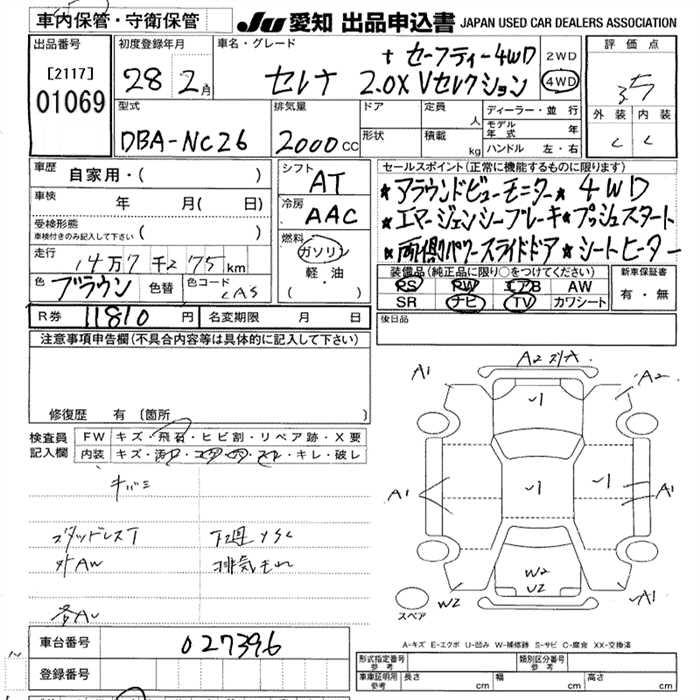 車内保管・守衛保管
JU 愛知 出品申込書 JAPAN USED CAR DEALERS ASSOCIATION
出品番号
[2117]
01069
初度登録年月
28 2月
車名・グレード
+ セーフティー4WD
セレナ 2.0X Vセレクション
2WD
4WD
評価点
3.5
外装 内装
C C
型式
DBA-NC26
排気量
2000cc
ドア
形状
定員 人
積載 kg
ディーラー・並行
モデル年式 年
ハンドル 左・右
車歴
自家用・( )
車検 年 月( 日)
受検形態
車検付きのみ記入して下さい ( )
走行
14万7千275km
色 ブラウン 色替 色コード CAS
シフト
AT
冷房
AAC
燃料
ガソリン
軽・油
( )
セールスポイント(正常に機能するものに限ります)
★アラウンドビューモニター★ 4WD
★エマージェンシーブレーキ★プッシュスタート
★両側パワースライドドア ★シートヒーター
装備品(純正品に限り○をつけてください)
PS PW エアB AW
SR ナビ TV カワシート
新車保証書
有・無
R券 11810円 名変期限 月 日
後日品
注意事項申告欄(不具合内容等は具体的に記入して下さい)
修復歴 有(箇所 )
検査員記入欄
FW キズ・飛石・ヒビ割・リペア跡・X要
内装 キズ・汚れ・コゲ・穴・スレ・キレ・破レ
キバミ
スタッドレスT 下廻りSC
外AW 排気もれ
A1
A2
A1
A1
A1
W2
1
1
1
W2
U2
スペア
A-キズ E-エクボ U-凹み W-補修跡 S-サビ C-腐食 XX-交換済
車台番号 027396
登録番号
形式指定番号 参考
類別区分番号 参考
車庫証明用 参考 長さ cm 幅 cm 高さ cm